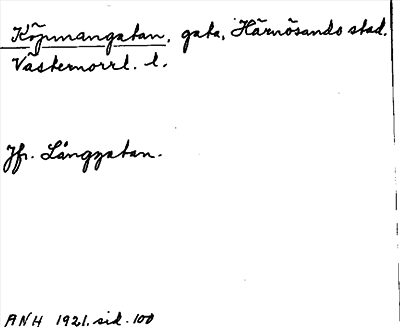 Köpmangatan, gata, Härnösands stad.
Västernorrl. l.
Jfr. Långgatan.
ANH 1921. sid. 100